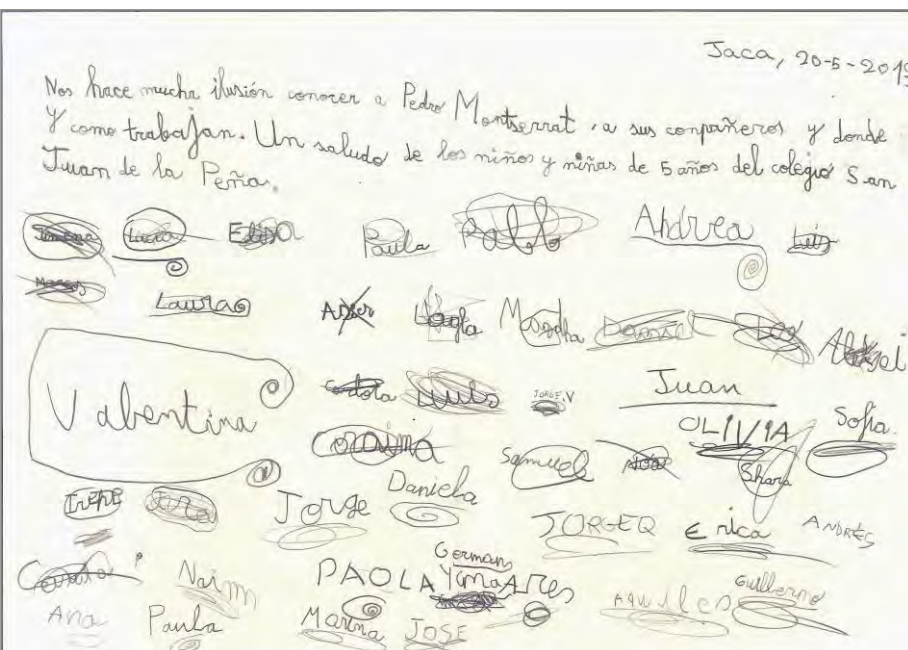 Jaca, 20-5-2019
Nos hace mucha ilusión conocer a Pedro Montserrat, a sus conpañeros y donde
y como trabajan. Un saludo de los niños y niñas de 5 años del colegio San
Juan de la Peña.
Jimena Lucía Elisa Paula Pablo Andrea Luis
Marcos Laura Daniel Leo Aleksei
Valentina Carlota JORGE.V Juan
Coraima Samuel OLIVIA Sofia
Shara
Irene Jorge Daniela JORGEQ Erica ANDRÉS
Naim PAOLA German Ares AQUILES Guillermo
Ana Paula Marina JOSE